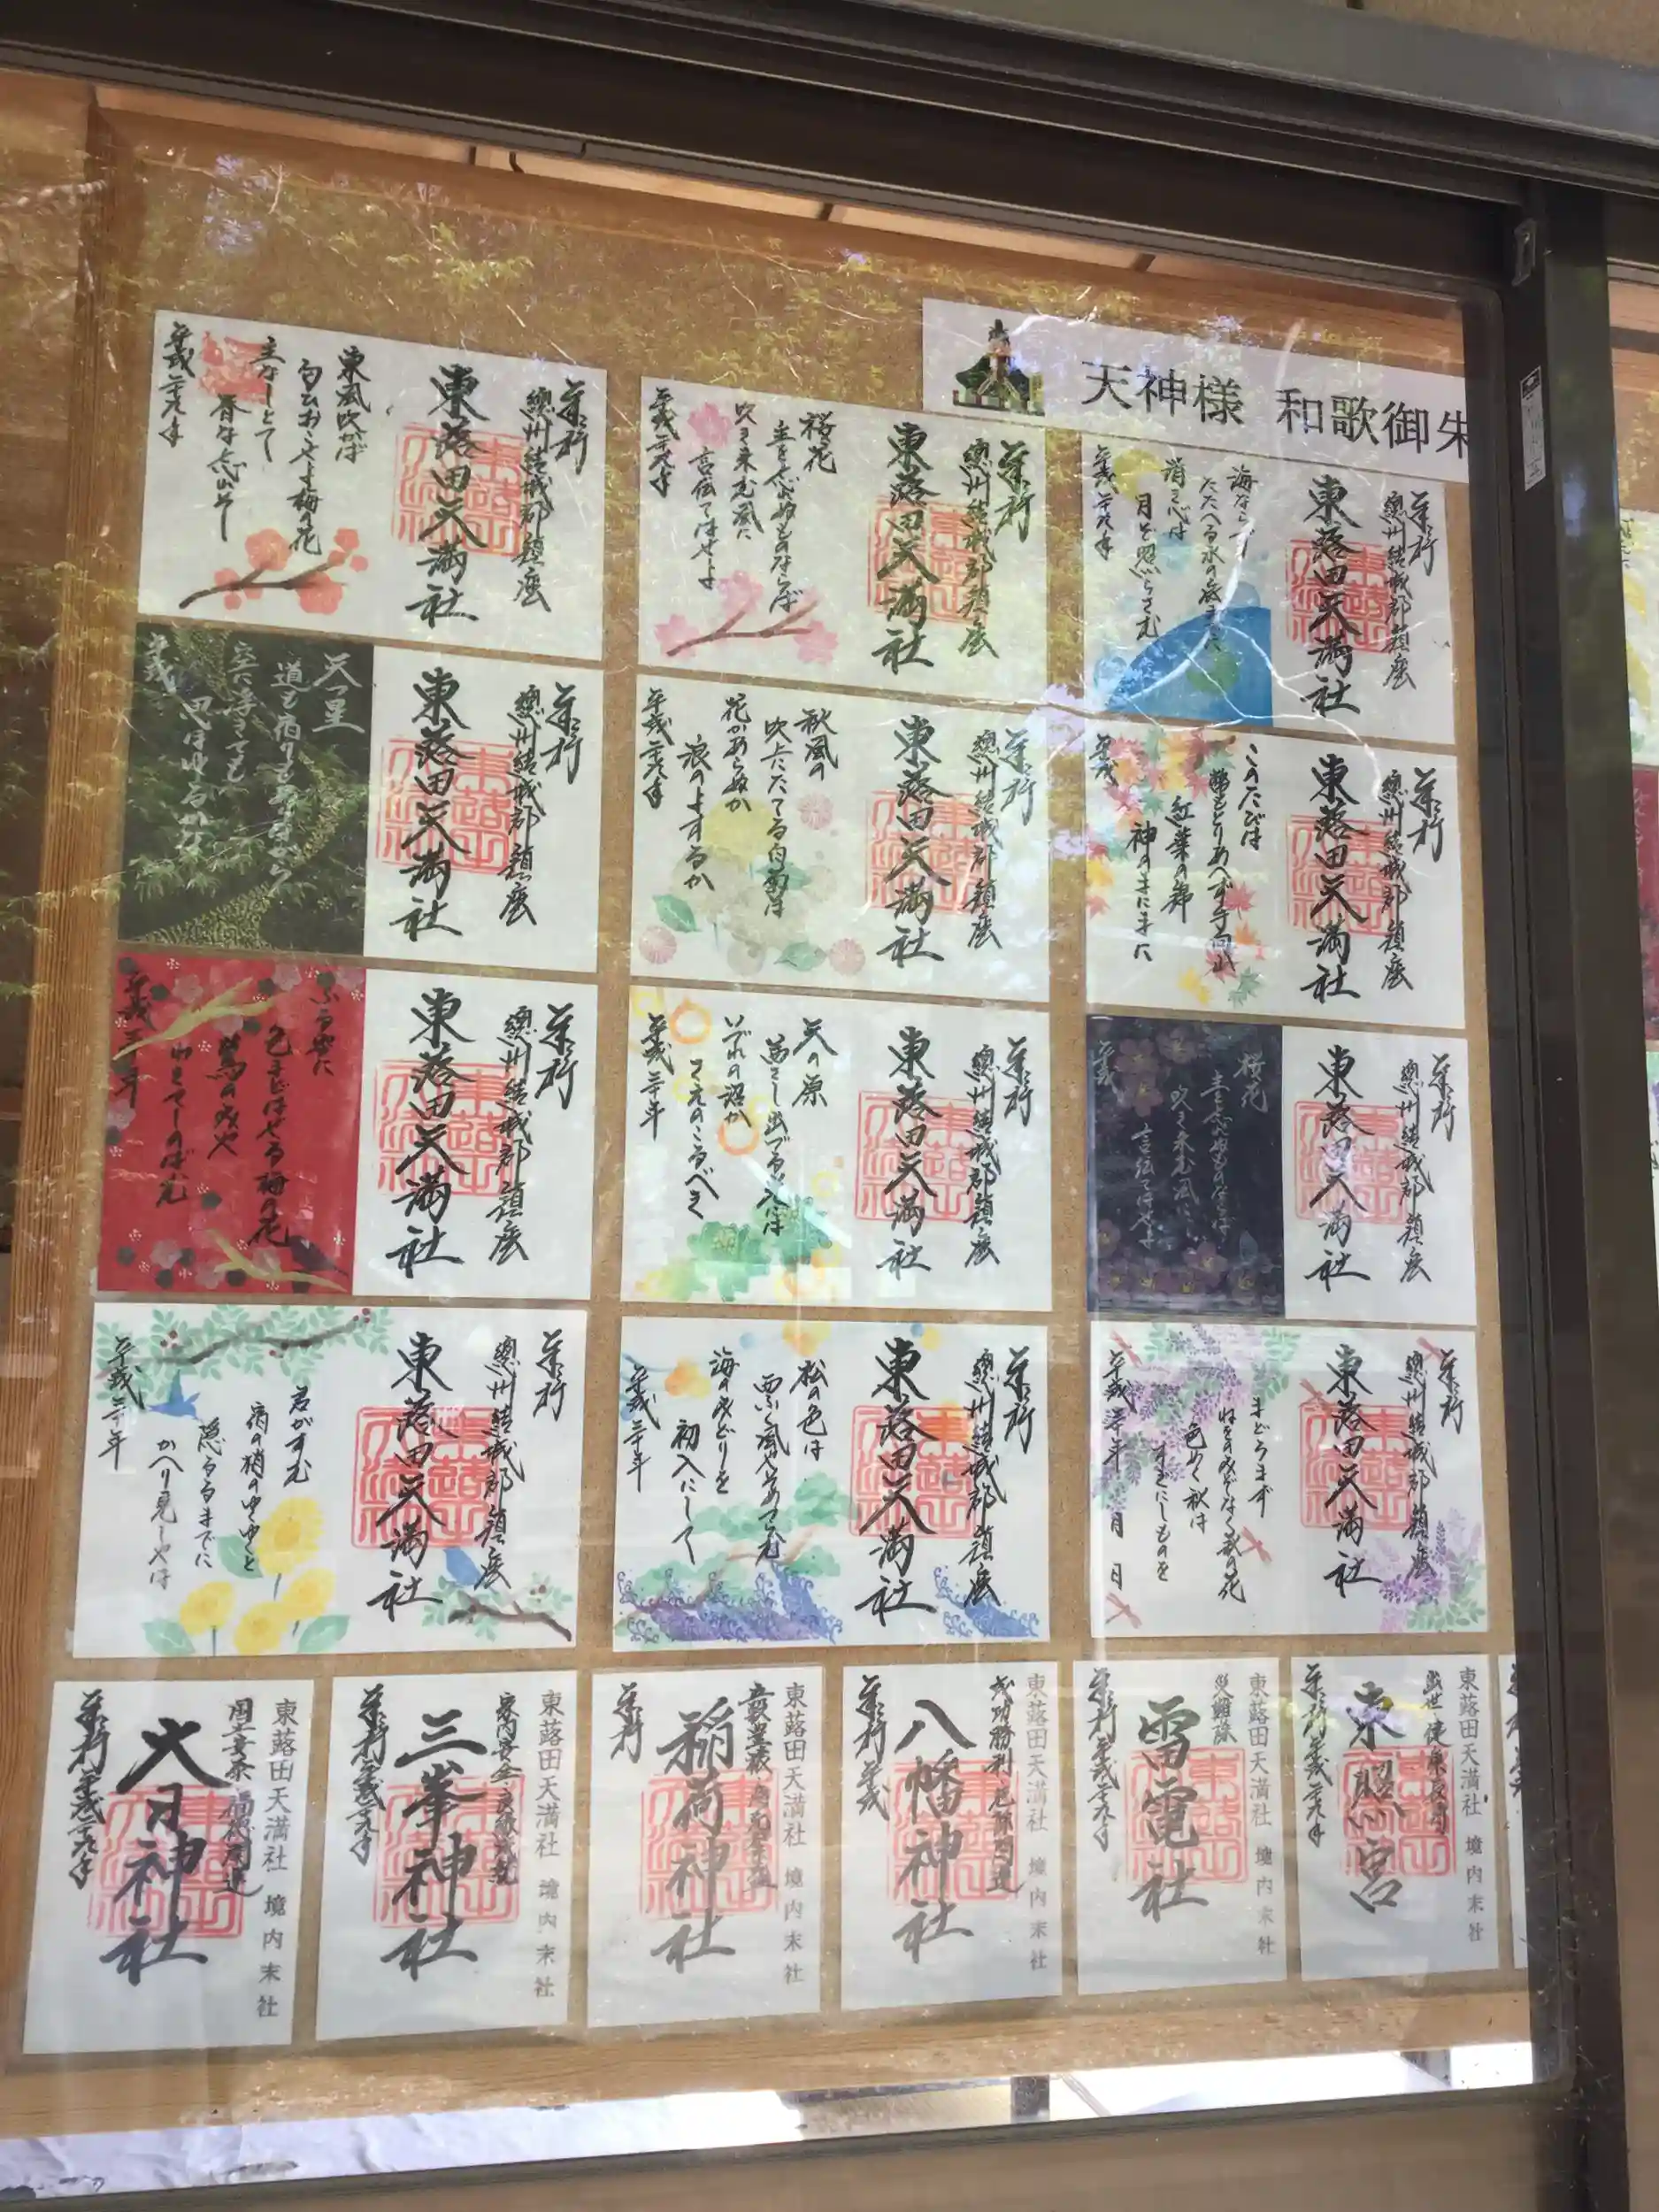 天神様 和歌御朱
東風吹かば
匂ひおこせよ梅の花
主なしとて
春な忘れそ
平成二十九年
東蕗田天満社
總州結城郡鎮座
桜花
主を忘れぬものならば
吹き来む風に
言伝てはせよ
平成二十九年
東蕗田天満社
總州結城郡鎮座
海ならず
たたへる水の底まで
清き心は
月ぞ照らさむ
平成二十九年
東蕗田天満社
總州結城郡鎮座
天つ星
道も宿りもありながら
空に浮きても
思ほゆるかな
平成
東蕗田天満社
總州結城郡鎮座
秋風の
吹上にたてる白菊は
花かあらぬか
浪のよするか
平成二十九年
東蕗田天満社
總州結城郡鎮座
このたびは
幣もとりあへず手向山
紅葉の錦
神のまにまに
平成
東蕗田天満社
總州結城郡鎮座
ふる雪に
色まどはせる梅の花
鶯のみや
わきてしのばむ
平成三十年
東蕗田天満社
總州結城郡鎮座
天の原
茜さし出づる光には
いづれの沼か
さえのこるべき
平成三十年
東蕗田天満社
總州結城郡鎮座
桜花
主を忘れぬものならば
吹き来む風に
言伝てはせよ
平成
東蕗田天満社
總州結城郡鎮座
君がすむ
宿の梢のゆくゆくと
隠るるまでに
かへり見しやは
平成三十年
東蕗田天満社
總州結城郡鎮座
松の色は
西ふく風やそめつらむ
海のみどりを
初入にして
平成三十年
東蕗田天満社
總州結城郡鎮座
まどろまず
ねをのみぞなく萩の花
色めく秋は
すぎにしものを
平成三十年 月 日
東蕗田天満社
總州結城郡鎮座
東蕗田天満社 境内末社
大日神社
平成二十九年
東蕗田天満社 境内末社
三峯神社
平成二十九年
東蕗田天満社 境内末社
稲荷神社
東蕗田天満社 境内末社
八幡神社
平成
東蕗田天満社 境内末社
災難除
雷電社
平成二十九年
東蕗田天満社 境内末社
東照宮
平成二十九年